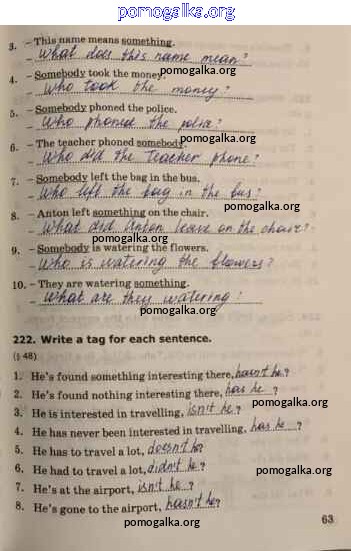 pomogalka.org
3. – This name means something.
– What does this name mean?
4. – Somebody took the money. pomogalka.org
– Who took the money?
5. – Somebody phoned the police.
– Who phoned the police?
pomogalka.org
6. – The teacher phoned somebody.
– Who did the teacher phone?
pomogalka.org
7. – Somebody left the bag in the bus.
– Who left the bag in the bus?
8. – Anton left something on the chair. pomogalka.org
– What did Anton leave on the chair?
pomogalka.org
9. – Somebody is watering the flowers.
– Who is watering the flowers?
pomogalka.org
10. – They are watering something.
– What are they watering?
pomogalka.org
222. Write a tag for each sentence.
(§ 48)
pomogalka.org
1. He's found something interesting there, hasn't he?
2. He's found nothing interesting there, has he?
pomogalka.org
3. He is interested in travelling, isn't he?
4. He has never been interested in travelling, has he?
pomogalka.org
5. He has to travel a lot, doesn't he?
6. He had to travel a lot, didn't he?
pomogalka.org
7. He's at the airport, isn't he?
8. He's gone to the airport, hasn't he?
63
pomogalka.org